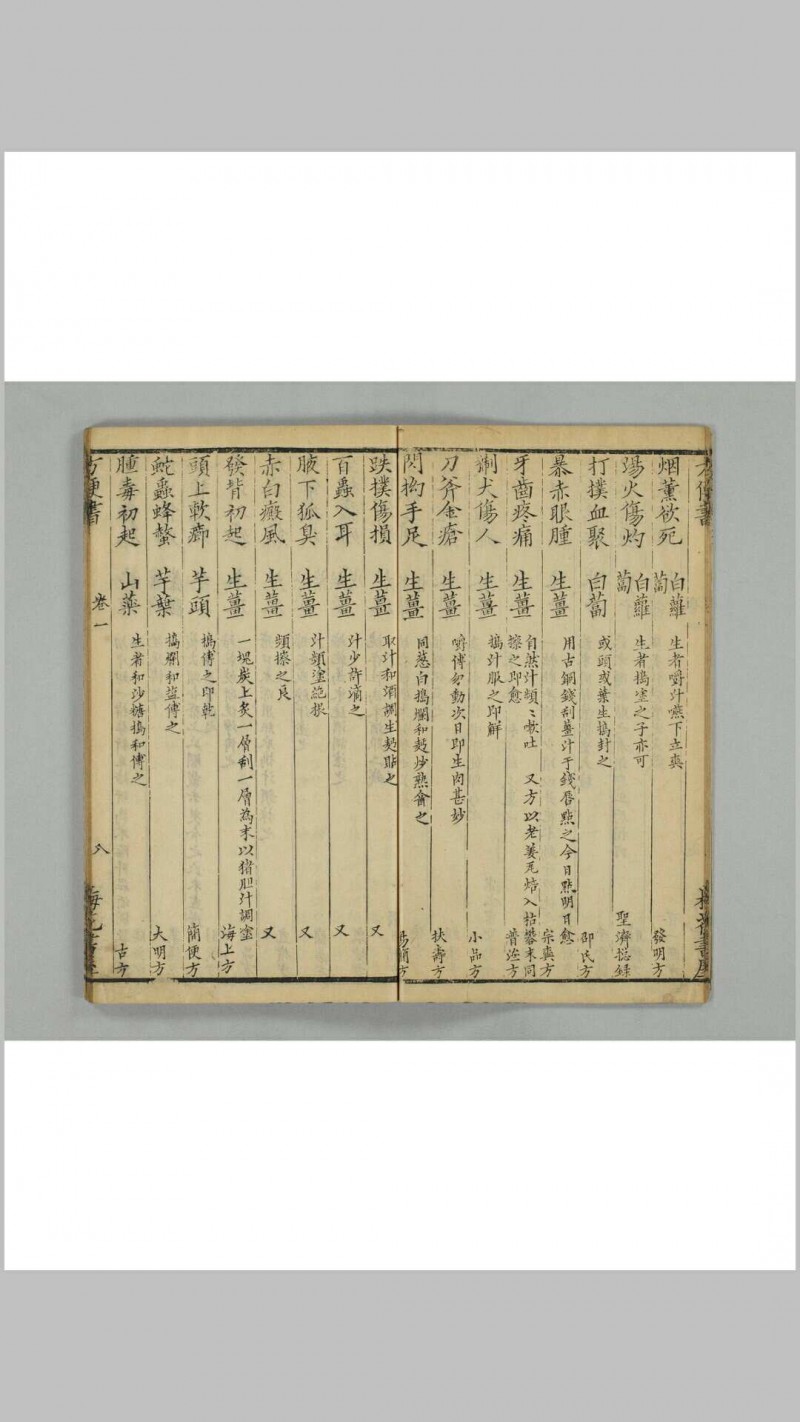 方便書
烟薰欲死 白蘿蔔 生者嚼汁嚥下立爽 發明方
湯火傷灼 白蘿蔔 生者搗塗之子亦可 聖濟総録
打撲血聚 白蔔 或頭或葉生搗封之 邵氏方
暴赤眼腫 生薑 用古銅錢刮薑汁于錢唇㸃之今日㸃明日愈 宗奭方
牙齒疼痛 生薑 自然汁頻〻嗽吐 又方以老姜瓦焙入枯礬末同擦之即愈 普濟方
猘犬傷人 生薑 搗汁服之即解 小品方
刀斧金瘡 生薑 嚼傅勿動次日即生肉甚妙 扶壽方
閃拗手足 生薑 同葱白搗爛和麪炒熱罨之 易簡方
跌撲傷損 生薑 取汁和酒調生麪貼之 又
百蟲入耳 生薑 汁少許滴之 又
腋下狐臭 生薑 汁頻塗絶根 又
赤白癜風 生薑 頻擦之良 又
發背初起 生薑 一塊炭上炙一層刮一層為末以猪胆汁調塗 海上方
頭上軟癤 芋頭 搗傅之即乾 簡便方
蛇蟲蜂螫 芋葉 搗爛和塩傅之 大明方
腫毒初起 山藥 生者和沙糖搗和傅之 古方
方便書 卷一 八